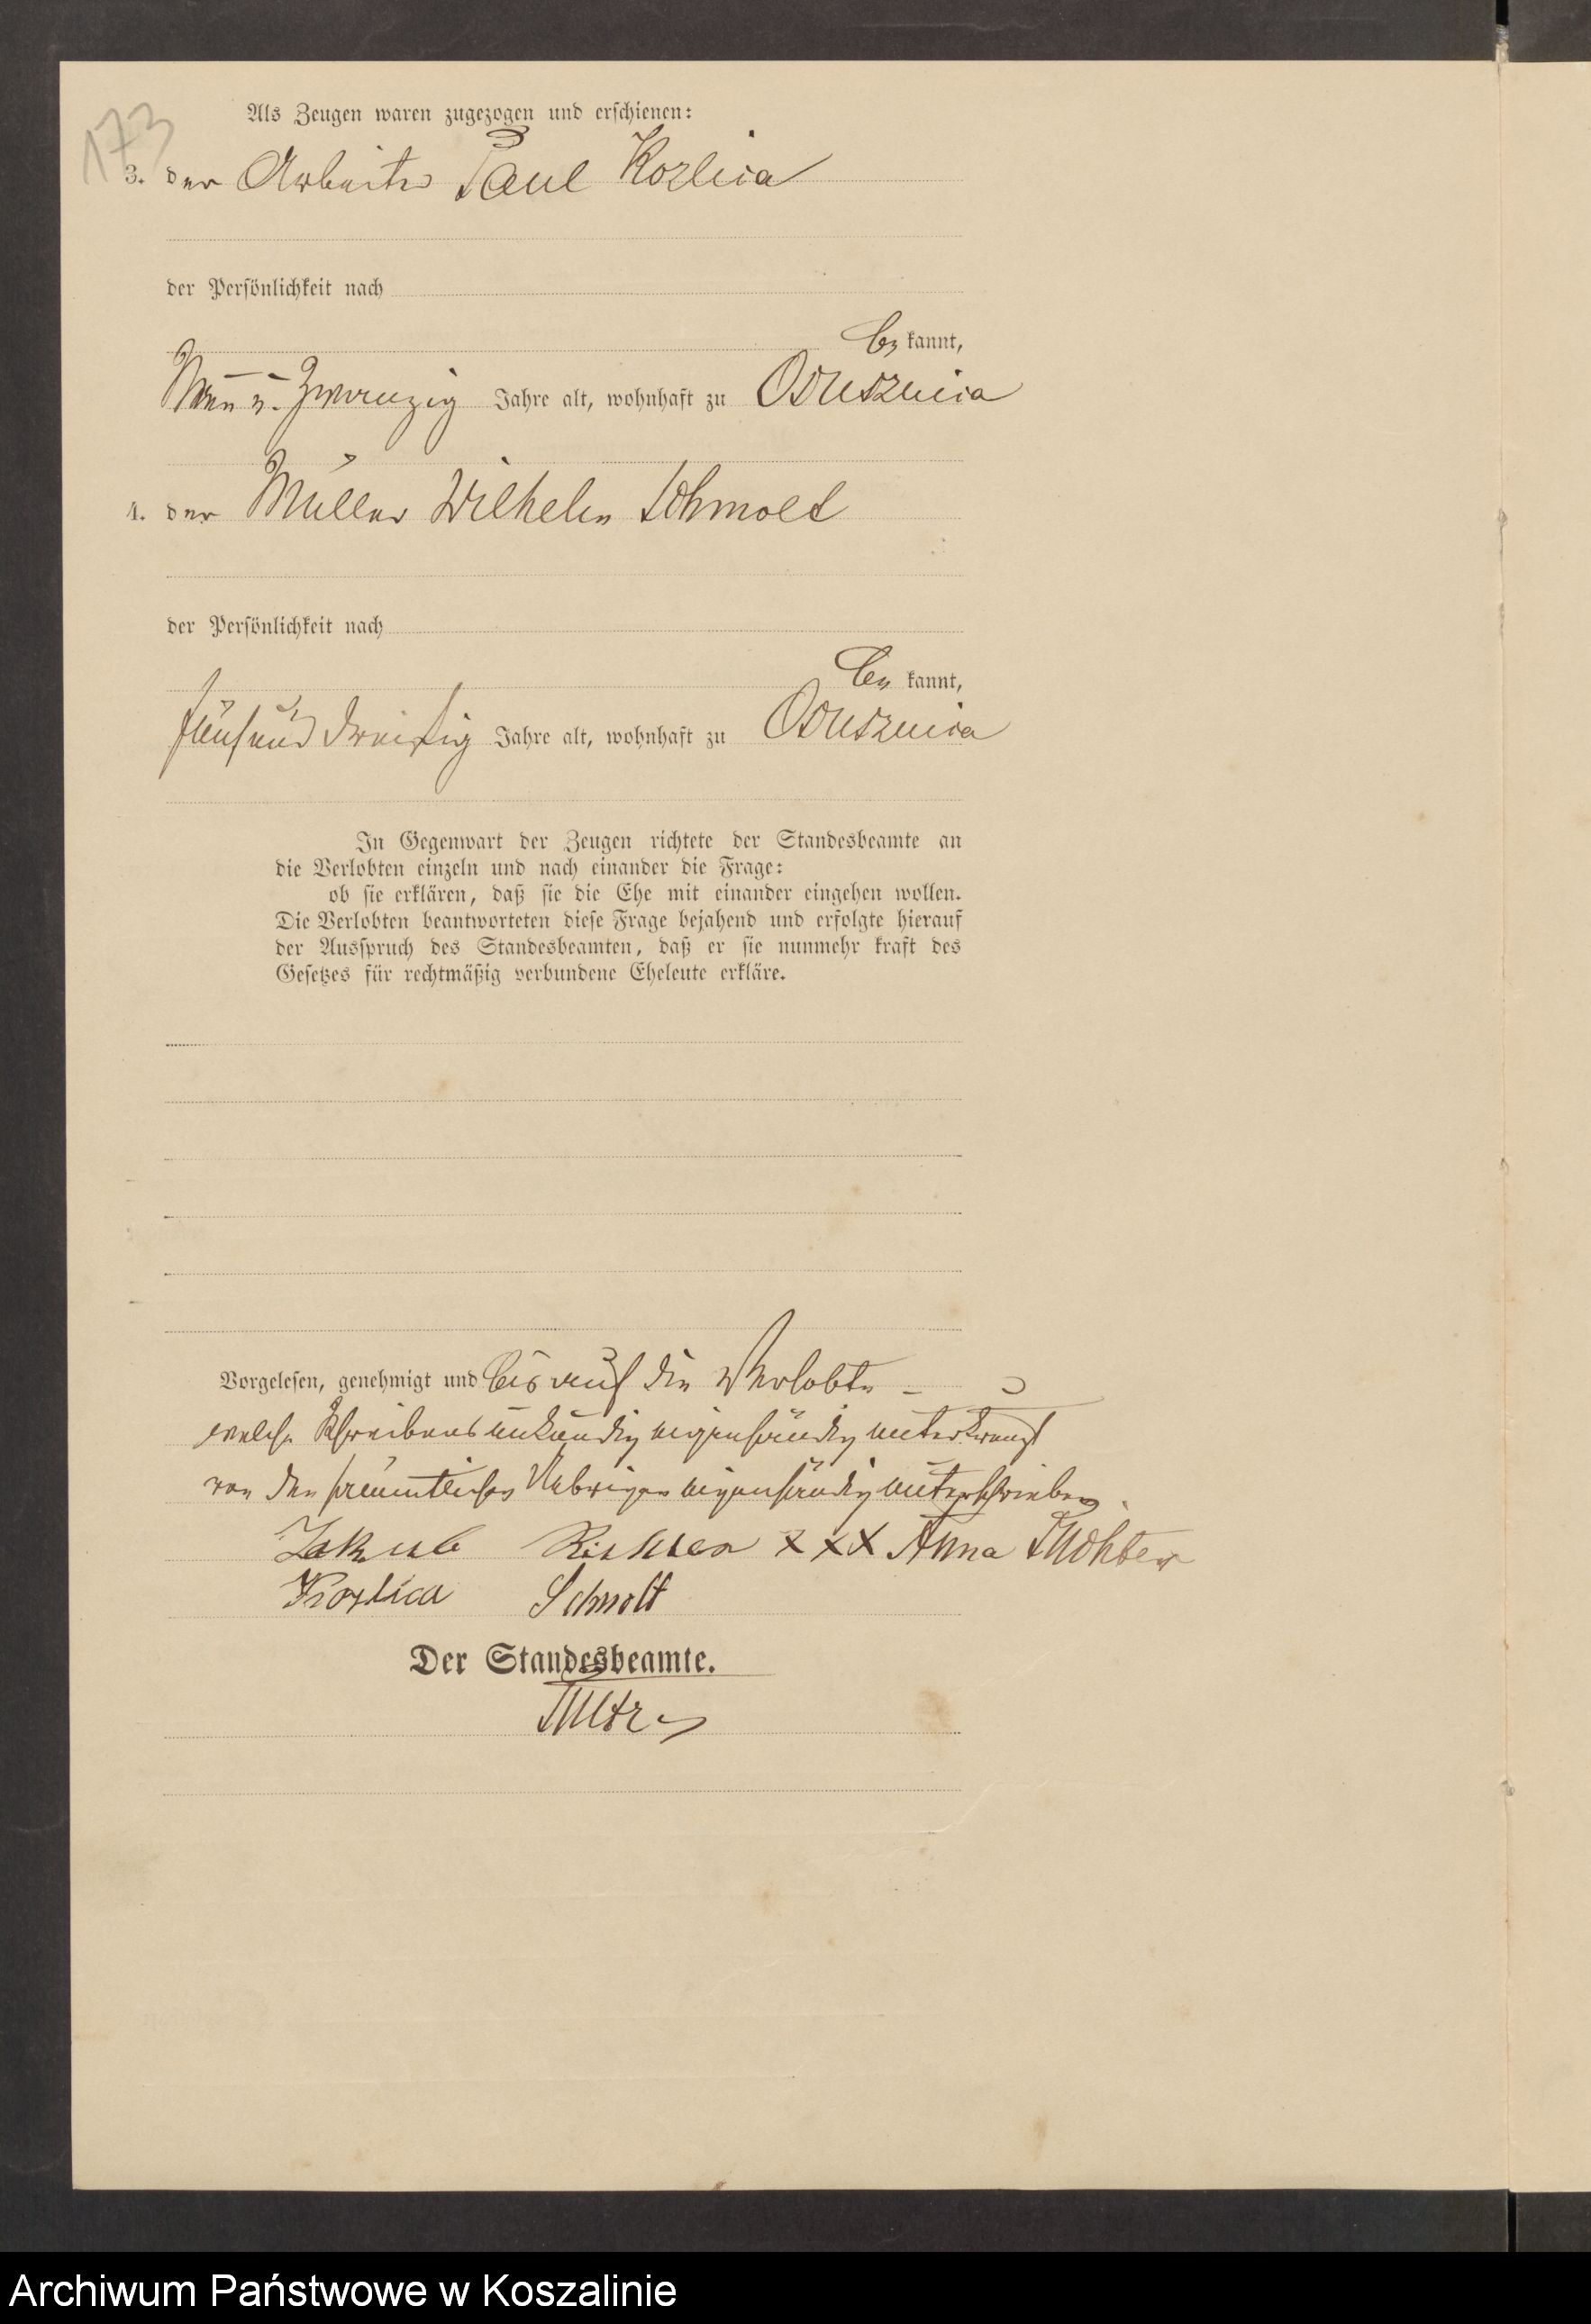 173
Als Zeugen waren zugezogen und erschienen:
3. der Arbeiter Paul Kozlica
der Persönlichkeit nach
be kannt,
Neun u. Zwanzig Jahre alt, wohnhaft zu Osusznica
4. der Müller Wilhelm Schmolt
der Persönlichkeit nach
be kannt,
fünfund dreißig Jahre alt, wohnhaft zu Osusznica
In Gegenwart der Zeugen richtete der Standesbeamte an
die Verlobten einzeln und nach einander die Frage:
ob sie erklären, daß sie die Ehe mit einander eingehen wollen.
Die Verlobten beantworteten diese Frage bejahend und erfolgte hierauf
der Ausspruch des Standesbeamten, daß er sie nunmehr kraft des
Gesetzes für rechtmäßig verbundene Eheleute erkläre.
Vorgelesen, genehmigt und bis auf die Verlobte
welche Schreibens unkundig eigenhändig unterkreuzt
von den sämmtlichen Uebrigen eigenhändig unterschrieben.
Jakub xxx Anna
Kozlica Schmolt
Der Standesbeamte.